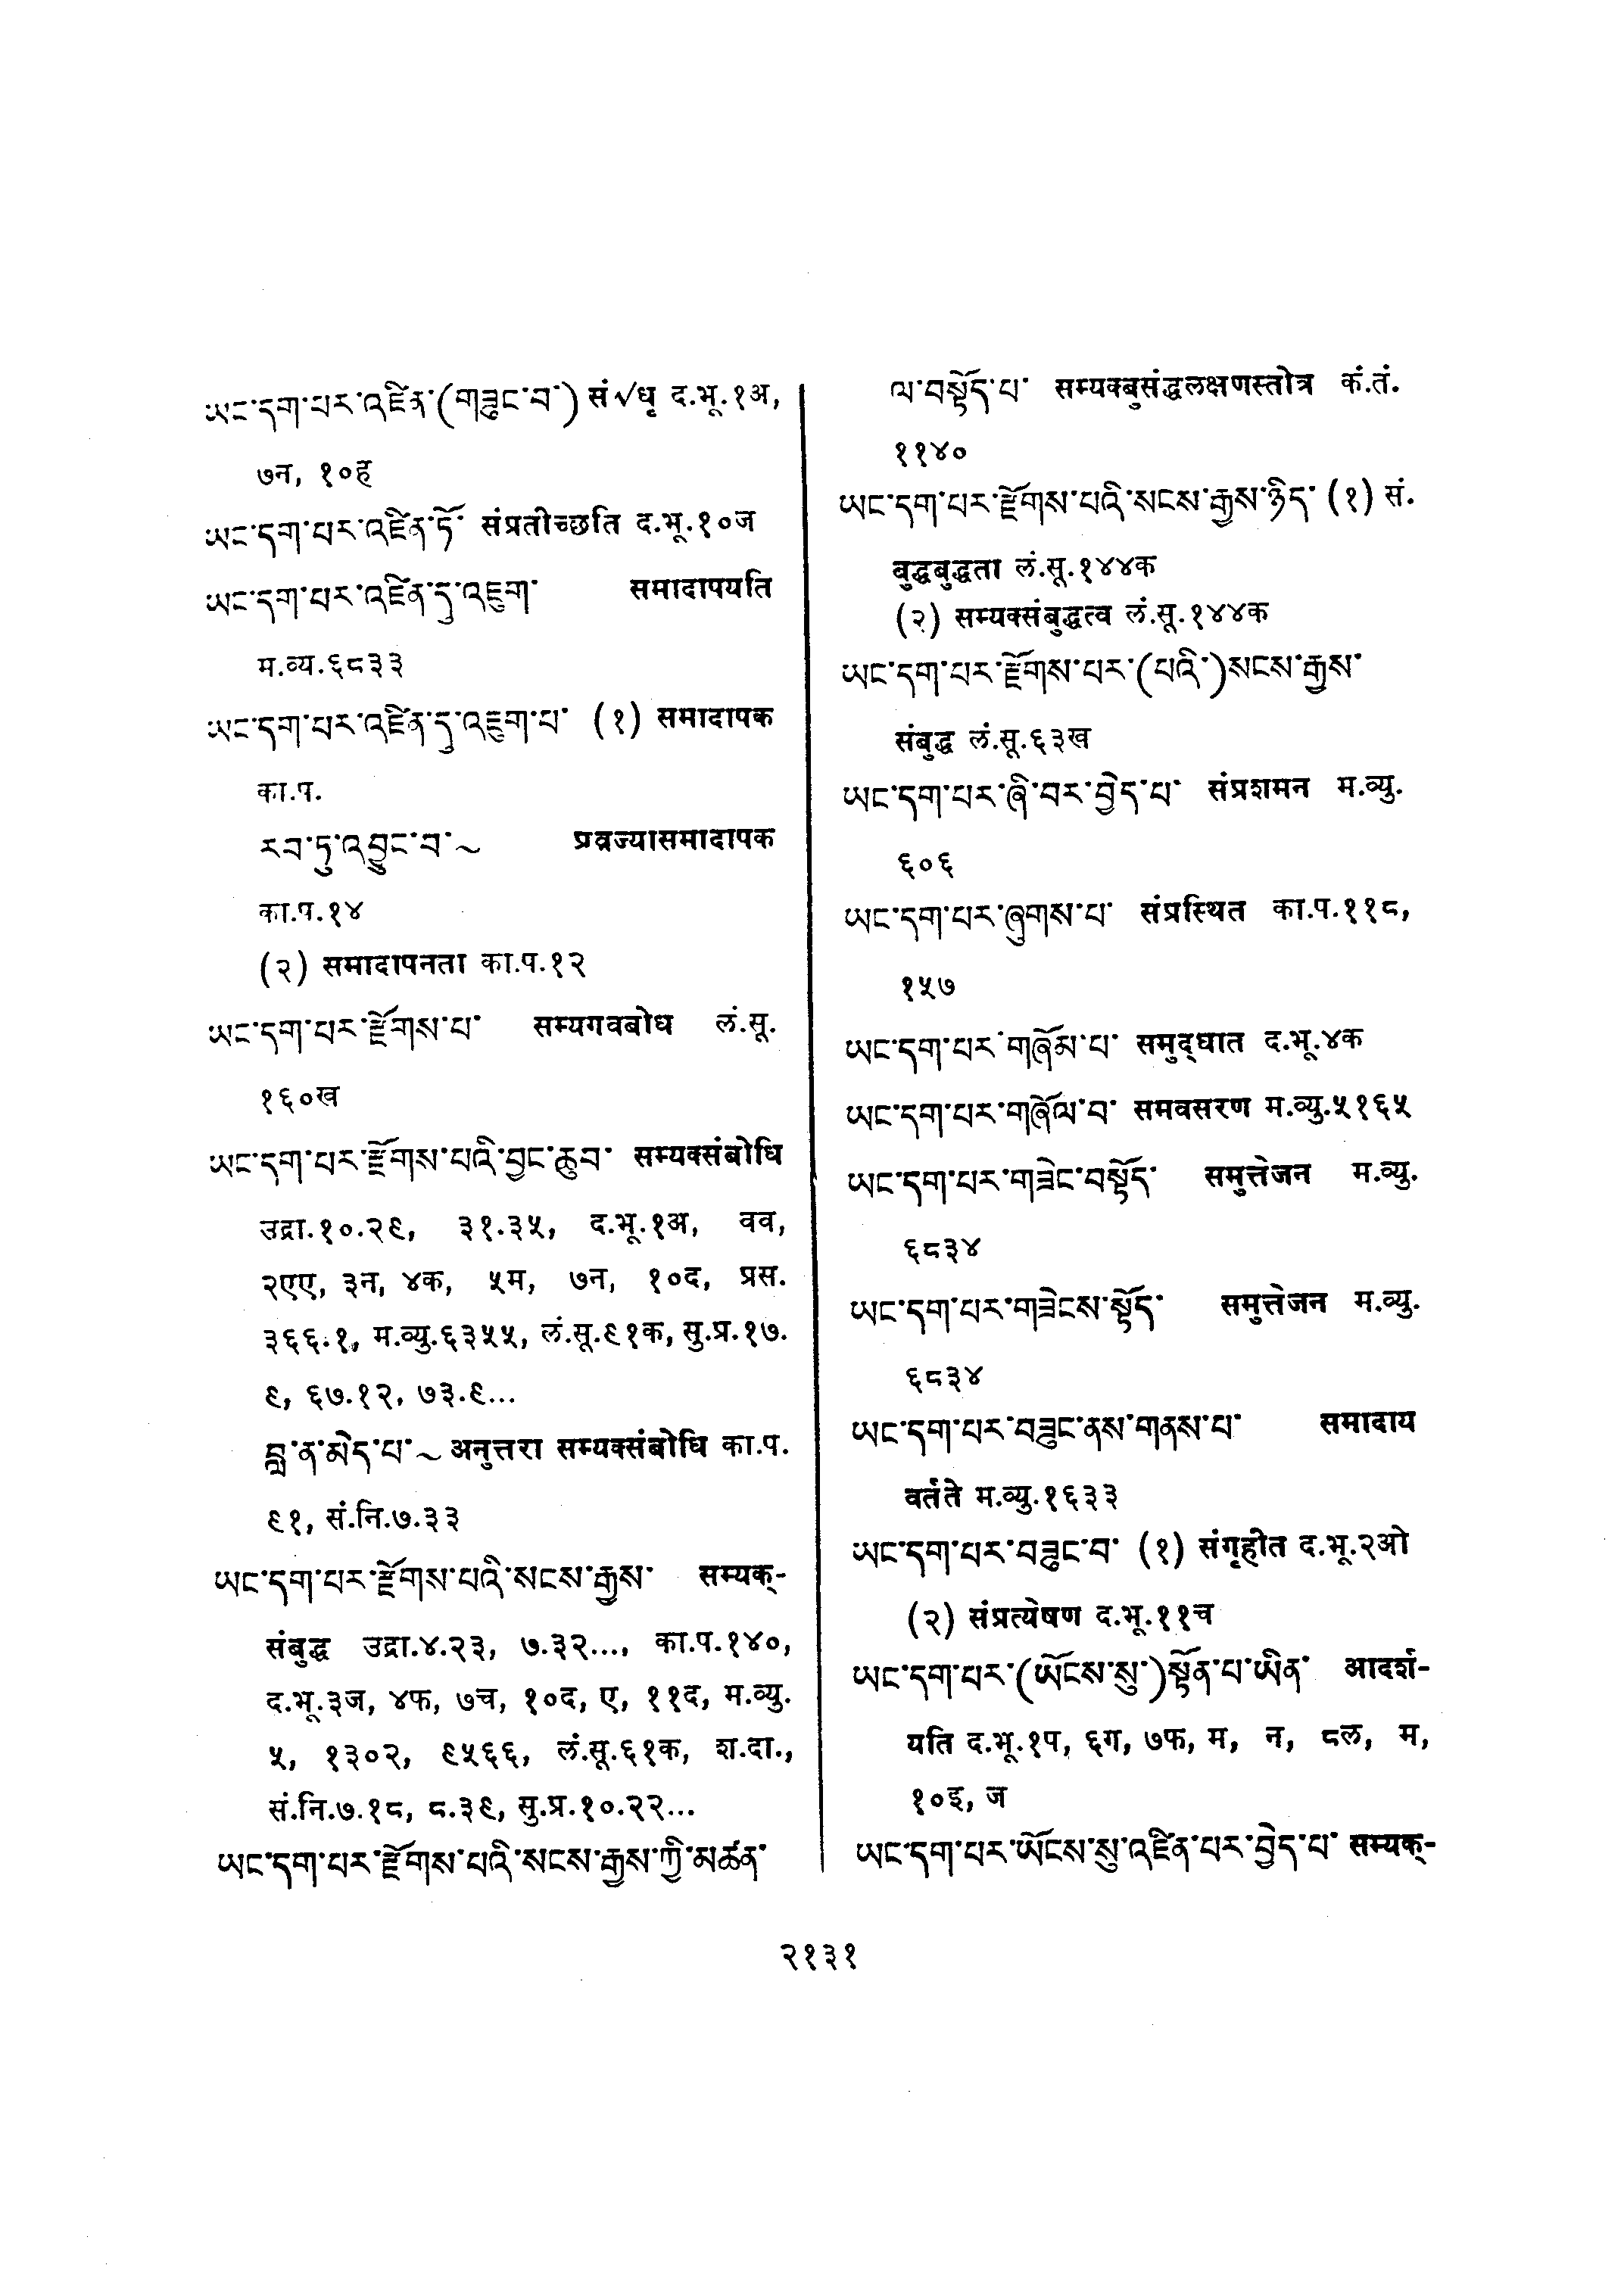 ཡང་དག་པར་འཛིན་(གཟུང་བ་) सं√धृ द.भू.१अ,
७न, १०ह
ཡང་དག་པར་འཛིན་ཏོ་ संप्रतीच्छति द.भू.१०ज
ཡང་དག་པར་འཛིན་དུ་འཇུག་ समादापयति
म.व्य.६८३३
ཡང་དག་པར་འཛིན་དུ་འཇུག་པ་ (१) समादापक
का.प.
རབ་ཏུ་འབྱུང་བ་~ प्रव्रज्यासमादापक
का.प.१४
(२) समादापनता का.प.१२
ཡང་དག་པར་རྫོགས་པ་ सम्यगवबोध लं.सू.
१६०ख
ཡང་དག་པར་རྫོགས་པའི་བྱང་ཆུབ་ सम्यक्संबोधि
उद्रा.१०.२९, ३१.३५, द.भू.१अ, वव,
२एए, ३न, ४क, ५म, ७न, १०द, प्रस.
३६६.१, म.व्यु.६३५५, लं.सू.९१क, सु.प्र.१७.
९, ६७.१२, ७३.९...
བླ་ན་མེད་པ་~ अनुत्तरा सम्यक्संबोधि का.प.
९१, सं.नि.७.३३
ཡང་དག་པར་རྫོགས་པའི་སངས་རྒྱས་ सम्यक्-
संबुद्ध उद्रा.४.२३, ७.३२..., का.प.१४०,
द.भू.३ज, ४फ, ७च, १०द, ए, ११द, म.व्यु.
५, १३०२, ९५६६, लं.सू.६१क, श.दा.,
सं.नि.७.१८, ८.३९, सु.प्र.१०.२२...
ཡང་དག་པར་རྫོགས་པའི་སངས་རྒྱས་ཀྱི་མཚན་
ལ་བསྟོད་པ་ सम्यक्बुसंद्धलक्षणस्तोत्र कं.तं.
११४०
ཡང་དག་པར་རྫོགས་པའི་སངས་རྒྱས་ཉིད་ (१) सं.
बुद्धबुद्धता लं.सू.१४४क
(२) सम्यक्संबुद्धत्व लं.सू.१४४क
ཡང་དག་པར་རྫོགས་པར་(པའི་)སངས་རྒྱས་
संबुद्ध लं.सू.६३ख
ཡང་དག་པར་ཞི་བར་བྱེད་པ་ संप्रशमन म.व्यु.
६०६
ཡང་དག་པར་ཞུགས་པ་ संप्रस्थित का.प.११८,
१५७
ཡང་དག་པར་གཞོམ་པ་ समुद्‌घात द.भू.४क
ཡང་དག་པར་གཞོལ་བ་ समवसरण म.व्यु.५१६५
ཡང་དག་པར་གཟེང་བསྟོད་ समुत्तेजन म.व्यु.
६८३४
ཡང་དག་པར་གཟེངས་སྟོད་ समुत्तेजन म.व्यु.
६८३४
ཡང་དག་པར་བཟུང་ནས་གནས་པ་ समादाय
वर्तते म.व्यु.१६३३
ཡང་དག་པར་བཟུང་བ་ (१) संगृहीत द.भू.२ओ
(२) संप्रत्येषण द.भू.११च
ཡང་དག་པར་(ཡོངས་སུ་)སྟོན་པ་ཡིན་ आदर्श-
यति द.भू.१प, ६ग, ७फ, म, न, ८ल, म,
१०इ, ज
ཡང་དག་པར་ཡོངས་སུ་འཛིན་པར་བྱེད་པ་ सम्यक्-
२१३१